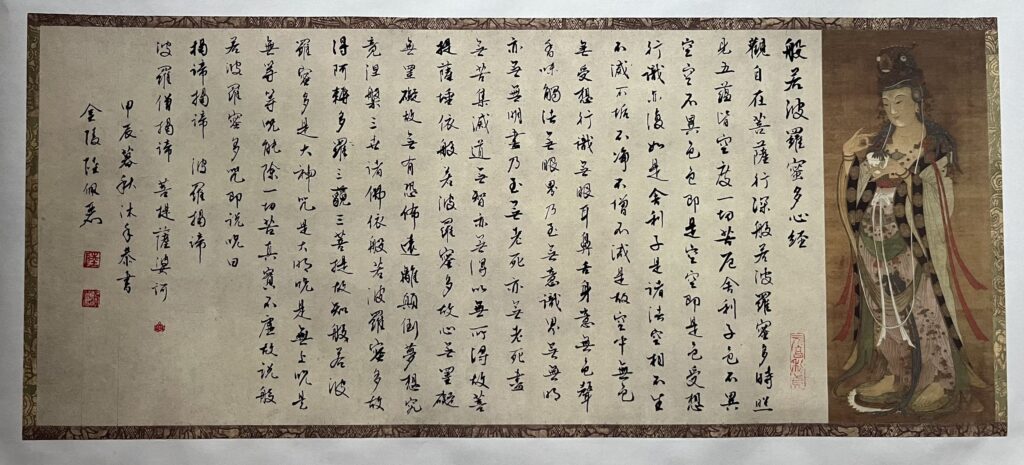 般若波羅蜜多心經
觀自在菩薩行深般若波羅蜜多時照
見五蘊皆空度一切苦厄舍利子色不異
空空不異色色即是空空即是色受想
行識亦復如是舍利子是諸法空相不生
不滅不垢不淨不增不減是故空中無色
無受想行識無眼耳鼻舌身意無色聲
香味觸法無眼界乃至無意識界無無明
亦無無明盡乃至無老死亦無老死盡
無苦集滅道無智亦無得以無所得故菩
提薩埵依般若波羅蜜多故心無罣礙
無罣礙故無有恐怖遠離顛倒夢想究
竟涅槃三世諸佛依般若波羅蜜多故
得阿耨多羅三藐三菩提故知般若波
羅蜜多是大神咒是大明咒是無上咒是
無等等咒能除一切苦真實不虛故說般
若波羅蜜多咒即說咒曰
揭諦揭諦 波羅揭諦
波羅僧揭諦 菩提薩婆訶
甲辰暮秋沐手恭書
金陵陸佩